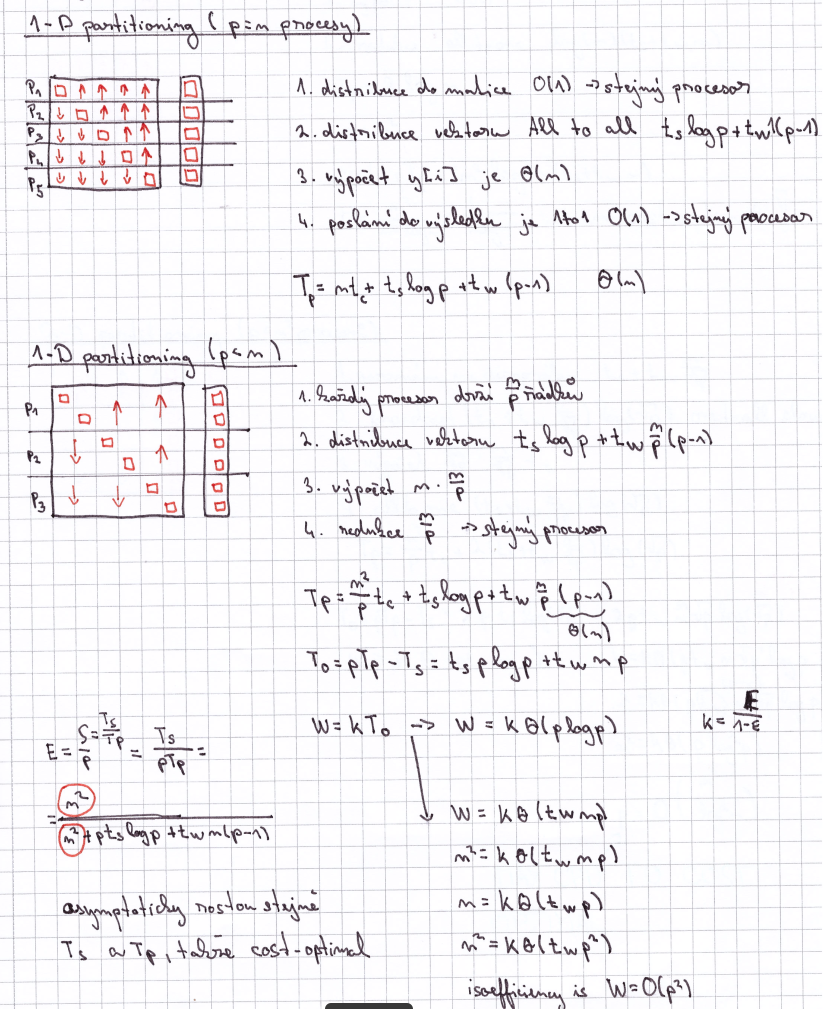 1-D partitioning (p=n procesy)
P1
P2
P3
P4
P5
1. distribuce do matice O(1) → stejný procesor
2. distribuce vektoru All to all ts log p + tw 1(p-1)
3. výpočet y[i] je Θ(n)
4. poslání do výsledku je 1to1 O(1) → stejný procesor
Tp = ntc + ts log p + tw (p-1) Θ(n)
1-D partitioning (p<n)
P1
P2
P3
1. každý procesor drží n/p řádků
2. distribuce vektoru ts log p + tw n/p (p-1)
3. výpočet n · n/p
4. redukce n/p → stejný procesor
Tp = n²/p tc + ts log p + tw n/p (p-1)
Θ(n)
To = pTp - Ts = ts p log p + tw n p
W = kTo → W = k Θ(p log p)
k = E/1-E
E = S/p = Ts/Tp = Ts/pTp =
= n²/n² + pts log p + tw n(p-1)
W = k Θ(tw np)
n² = k Θ(tw np)
n = k Θ(tw p)
n² = k Θ(tw p²)
isoefficiency is W = O(p²)
asymptoticky rostou stejně
Ts a Tp, takže cost-optimal